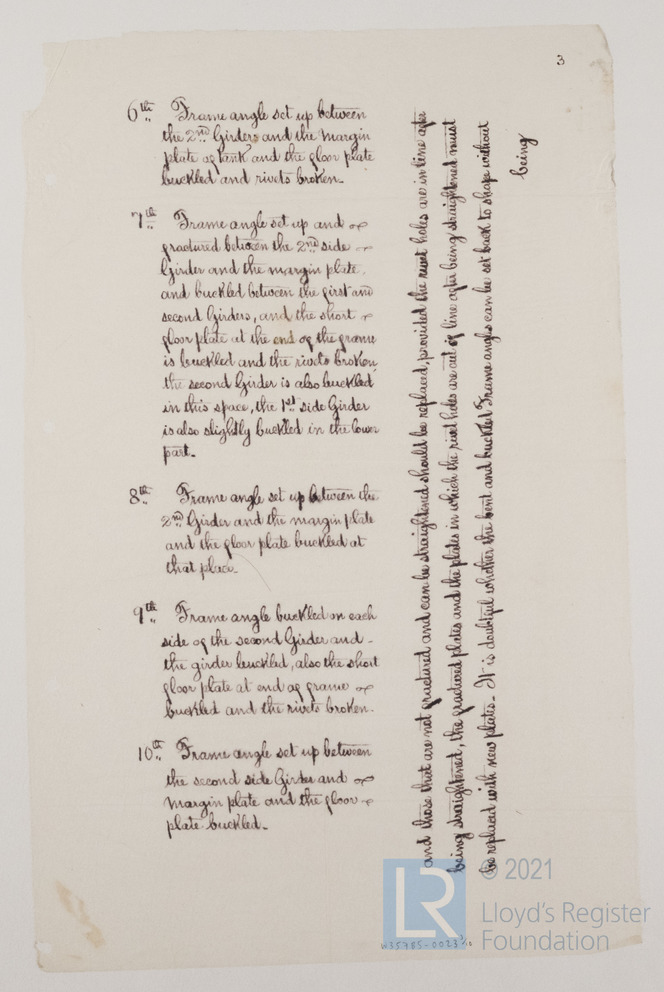 3
6th Frame angle set up between
the 2nd Girders and the margin
plate of tank and the floor plate
buckled and rivets broken.
7th Frame angle set up and
fractured between the 2nd side
Girder and the margin plate,
and buckled between the first and
second Girders, and the short
floor plate at the end of the frame
is buckled and the rivets broken,
the second Girder is also buckled
in this space, the 1st side Girder
is also slightly buckled in the lower
part.
8th Frame angle set up between the
2nd Girder and the margin plate
and the floor plate buckled at
that place.
9th Frame angle buckled on each
side of the second Girder and -
the girder buckled, also the short
floor plate at end of frame
buckled and the rivets broken.
10th Frame angle set up between
the second side Girder and
margin plate and the floor -
plate buckled.
and those that are not fractured and can be straightened should be replaced, provided the rivet holes are in line after
being straightened, the fractured plates and the plates in which the rivet holes are out of line after being straightened must
be replaced with new plates. It is doubtful whether the bent and buckled Frame angles can be set back to shape without
being
W35785-0023
© 2021
LR
Lloyd's Register
Foundation